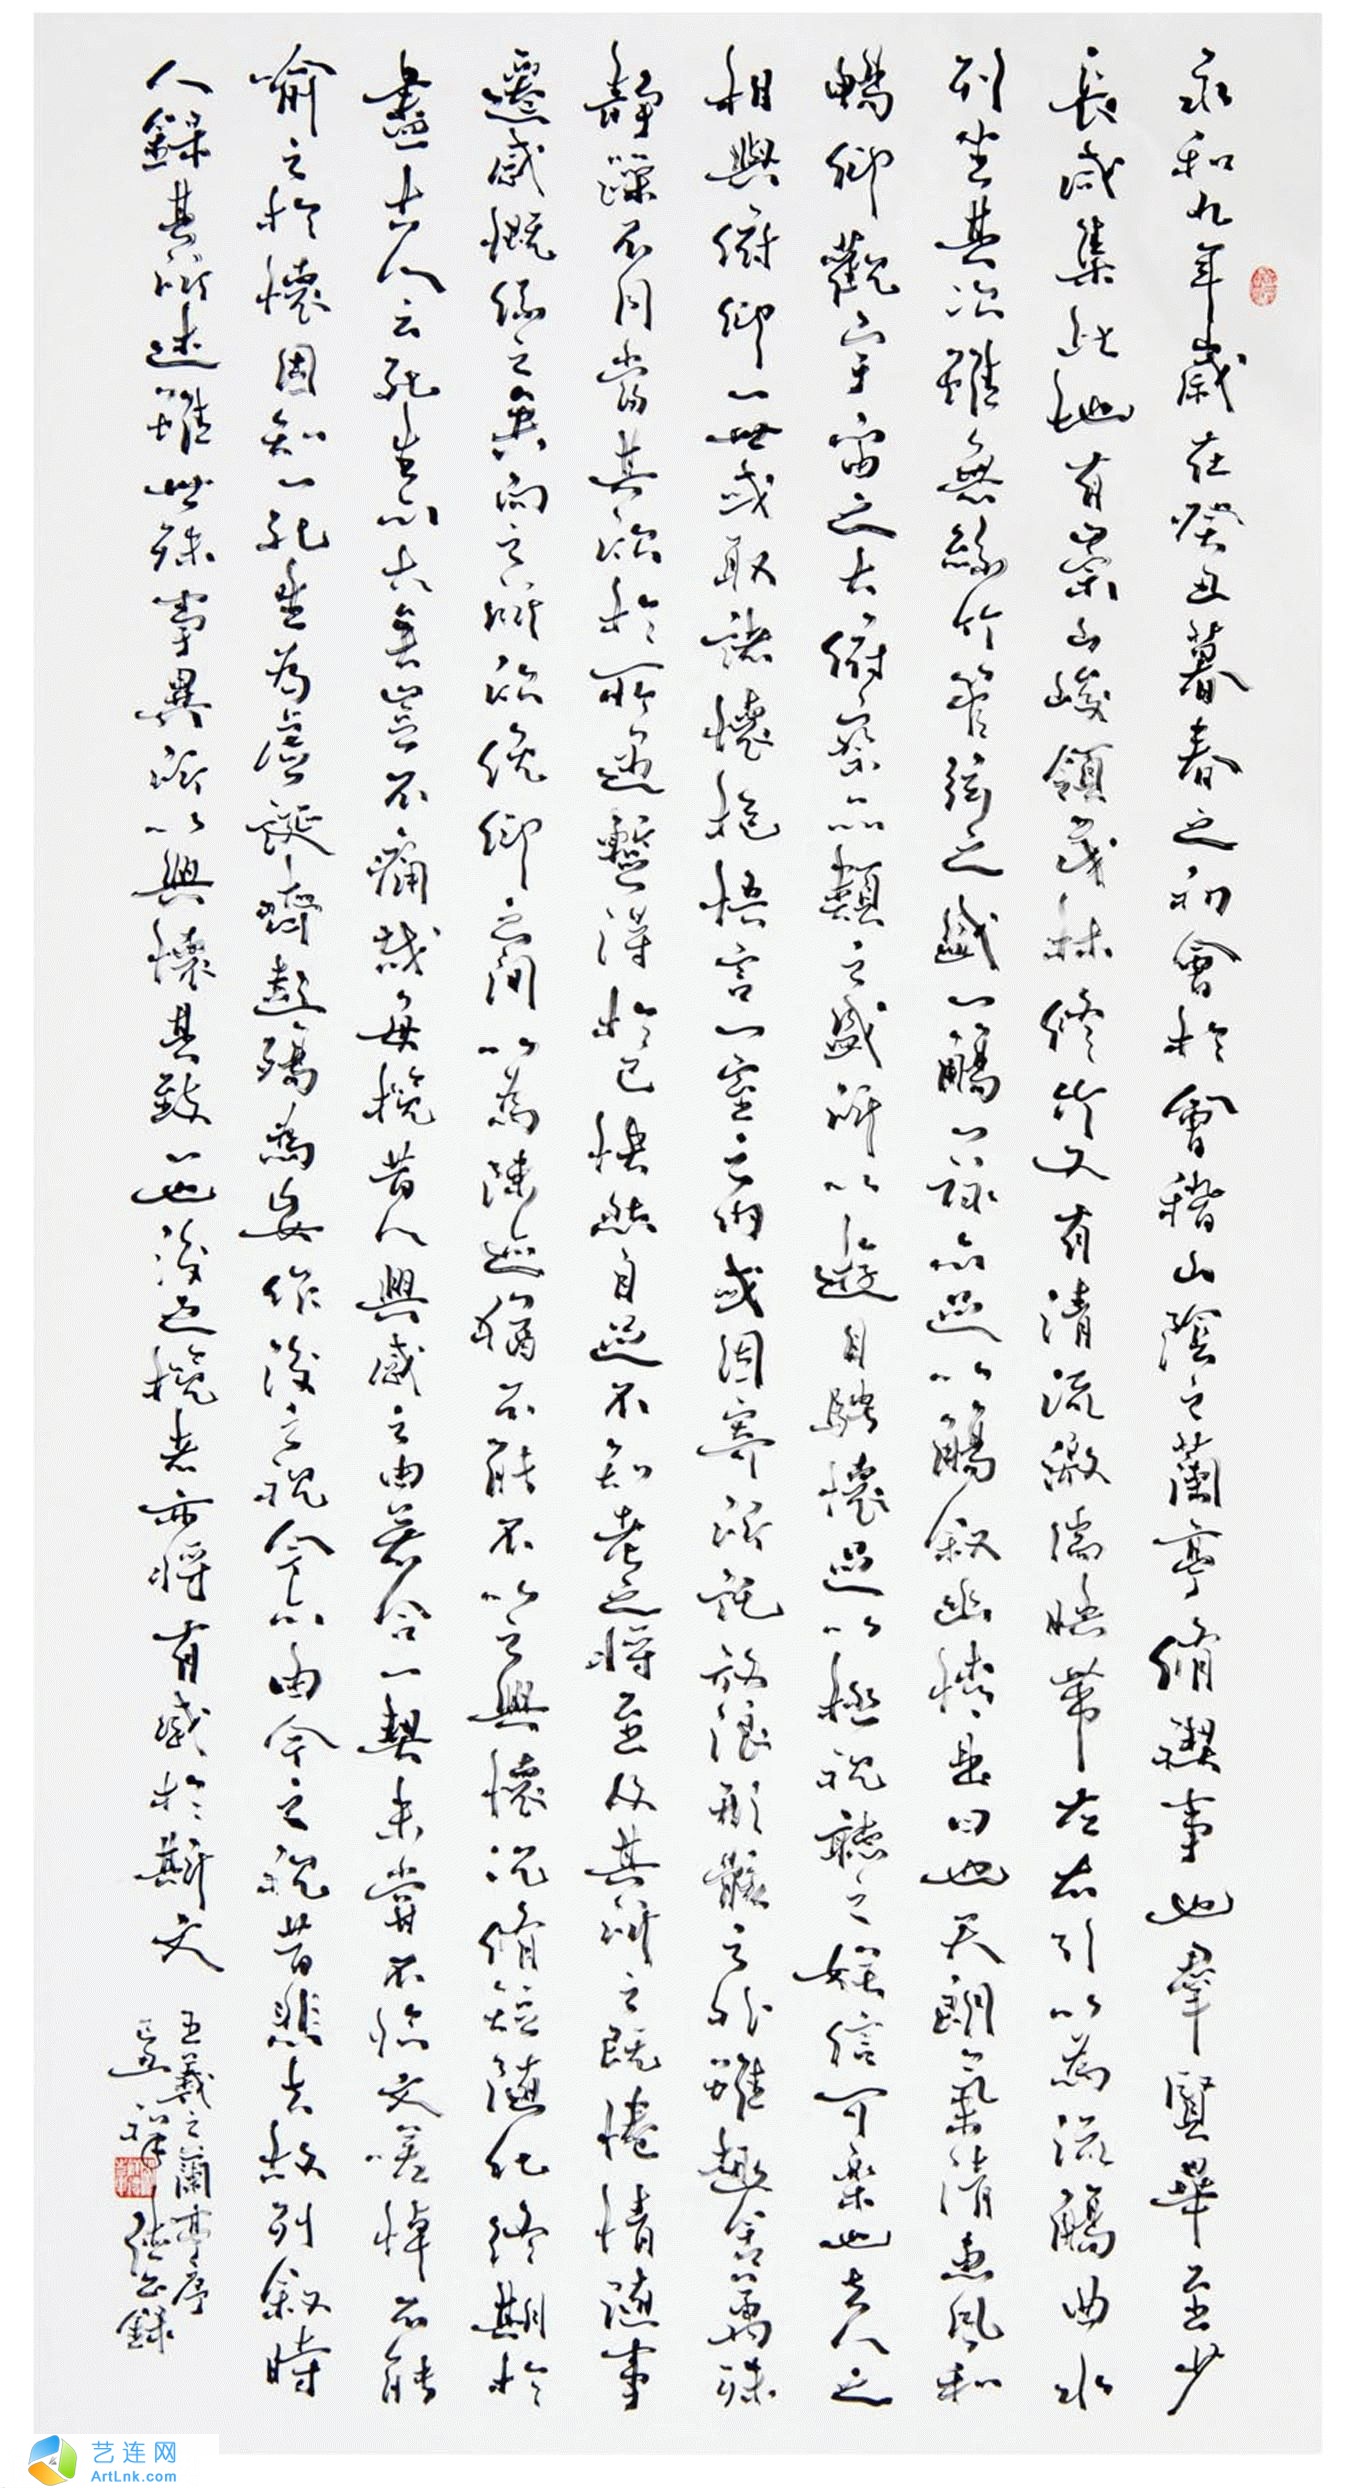 永和九年歲在癸丑暮春之初會於會稽山陰之蘭亭脩禊事也羣賢畢至少
長咸集此地有崇山峻領茂林修竹又有清流激湍暎帶左右引以為流觴曲水
列坐其次雖無絲竹管弦之盛一觴一詠亦足以觴敘幽情是日也天朗氣清惠風和
暢仰觀宇宙之大俯察品類之盛所以遊目騁懷足以極視聽之娛信可樂也夫人之
相與俯仰一世或取諸懷抱悟言一室之內或因寄所託放浪形骸之外雖趣舍萬殊
靜躁不同當其欣於所遇暫得於己快然自足不知老之將至及其所之既惓情隨事
遷感慨係之矣向之所欣俛仰之間以為陳迹猶不能不以之興懷況脩短隨化終期於
盡古人云死生亦大矣豈不痛哉每攬昔人興感之由若合一契未嘗不臨文嗟悼不能
喻之於懷固知一死生為虛誕齊彭殤為妄作後之視今亦由今之視昔悲夫故列敘時
人錄其所述雖世殊事異所以興懷其致一也後之攬者亦將有感於斯文
王羲之蘭亭序
祥錄
艺连网
ArtLnk.com